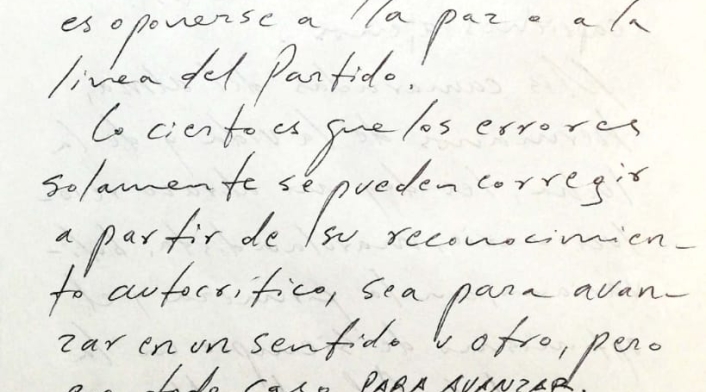 es oponerse a la paz o a la
línea del Partido.
Lo cierto es que los errores
solamente se pueden corregir
a partir de su reconocimien-
to autocrítico, sea para avan-
zar en un sentido u otro, pero
en todo caso PARA AVANZAR.